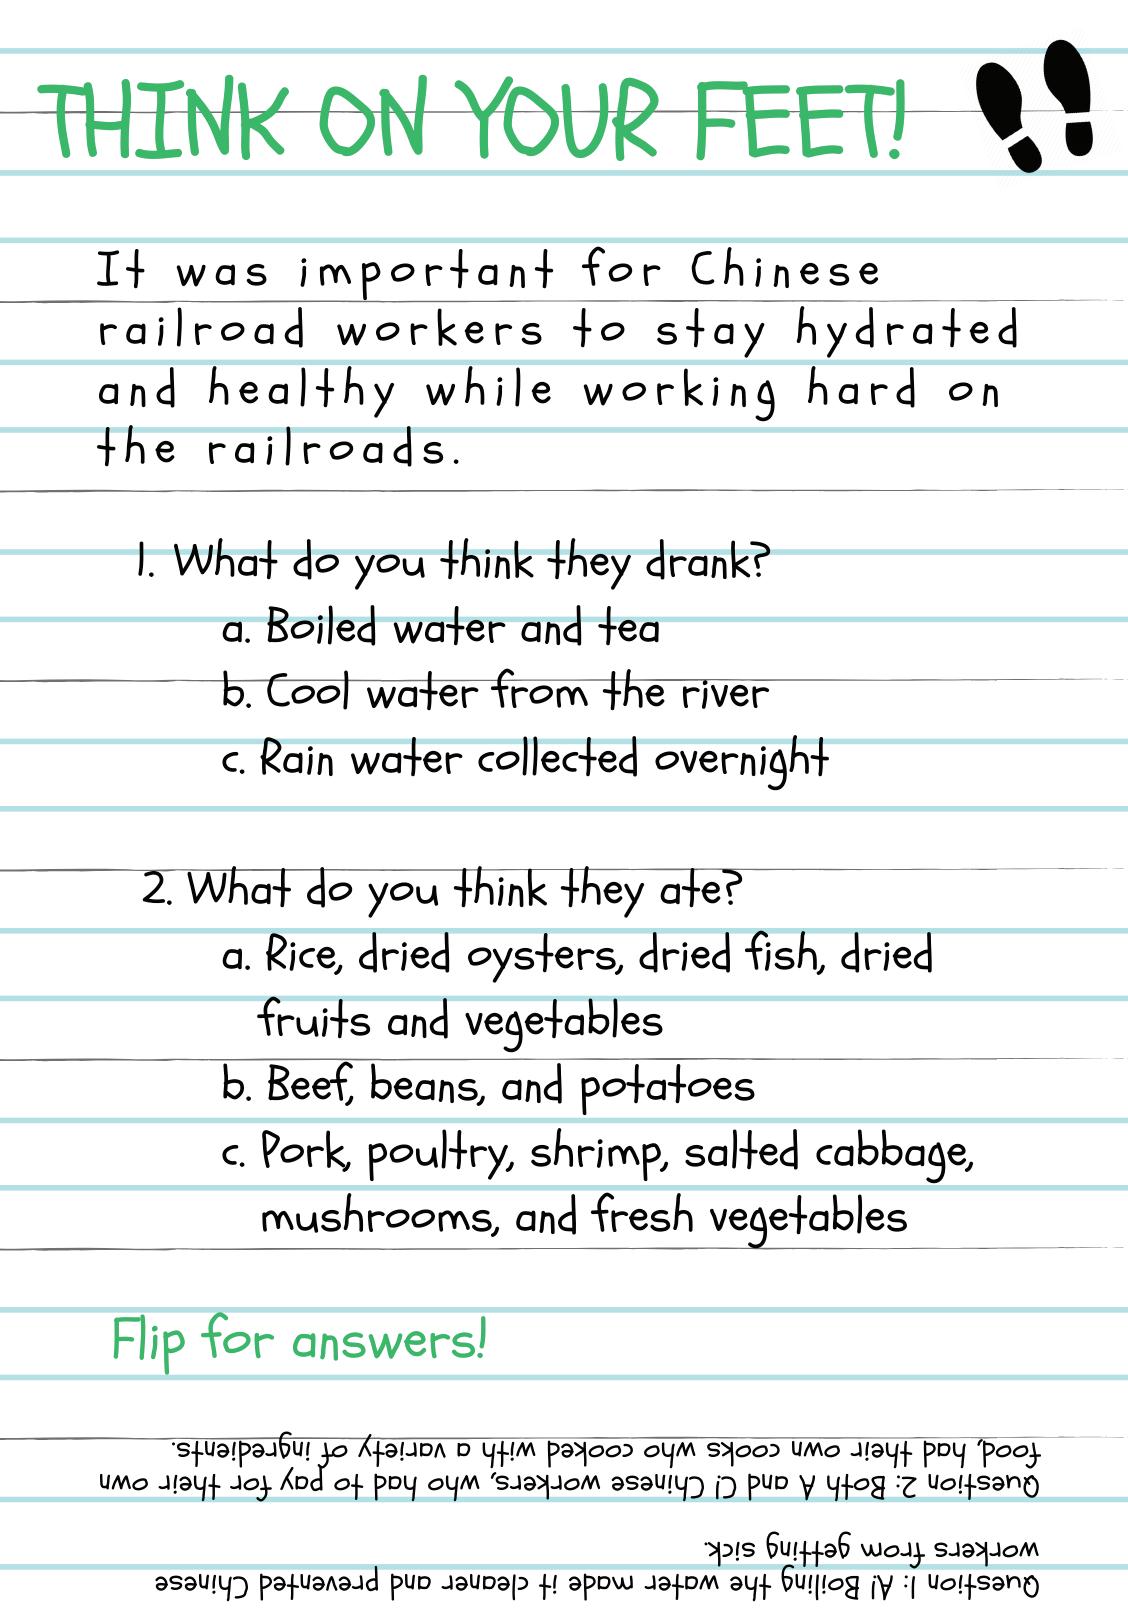 THINK ON YOUR FEET!
It was important for Chinese
railroad workers to stay hydrated
and healthy while working hard on
the railroads.
1. What do you think they drank?
a. Boiled water and tea
b. Cool water from the river
c. Rain water collected overnight
2. What do you think they ate?
a. Rice, dried oysters, dried fish, dried
fruits and vegetables
b. Beef, beans, and potatoes
c. Pork, poultry, shrimp, salted cabbage,
mushrooms, and fresh vegetables
Flip for answers!
Question 1: A! Boiling the water made it cleaner and prevented Chinese
workers from getting sick.
Question 2: Both A and C! Chinese workers, who had to pay for their own
food, had their own cooks who cooked with a variety of ingredients.